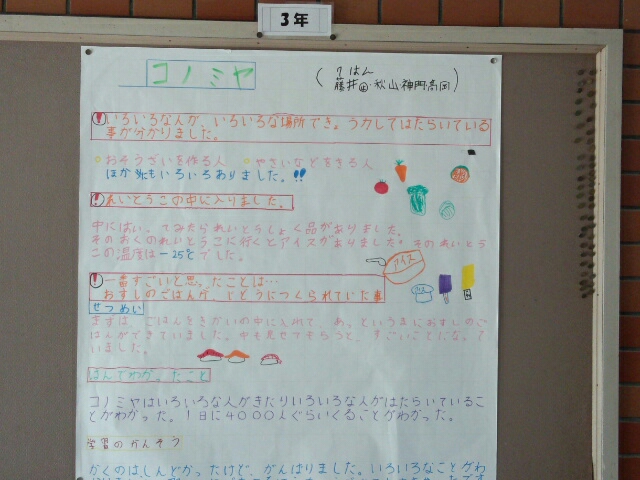 3年
コノミヤ
(7はん
藤井 秋山 神門 高岡)
いろいろな人が、いろいろな場所でき。うかしてはたらいている
事が分かりました。
おそうざいを作る人 やさいなどをきる人
ほかにもいろいろありました。!!
れいとうこの中に入りました。
中にはい、てみたられいとうしょく品がありました。
そのおくのれいとうこに行くとアイスがありました。そのれいとう
この温度は-25℃でした。
アイス
一番すごいと思ったことは…
おすしのごはんが、じどうにつくられていた事
せつめい
まずは、ごはんをきかいの中に入れて、あっというまにおすしのご
はんができていました。中も見せてもらうと、すごいことになって
いました。
はんでわかったこと
コノミヤはいろいろな人がきたりいろいろな人がはたらいているこ
とがわかった。1日に4000人ぐらいくることがわかった。
学習のかんそう
かくのはしんどかったけど、がんばりました。いろいろなことがわ